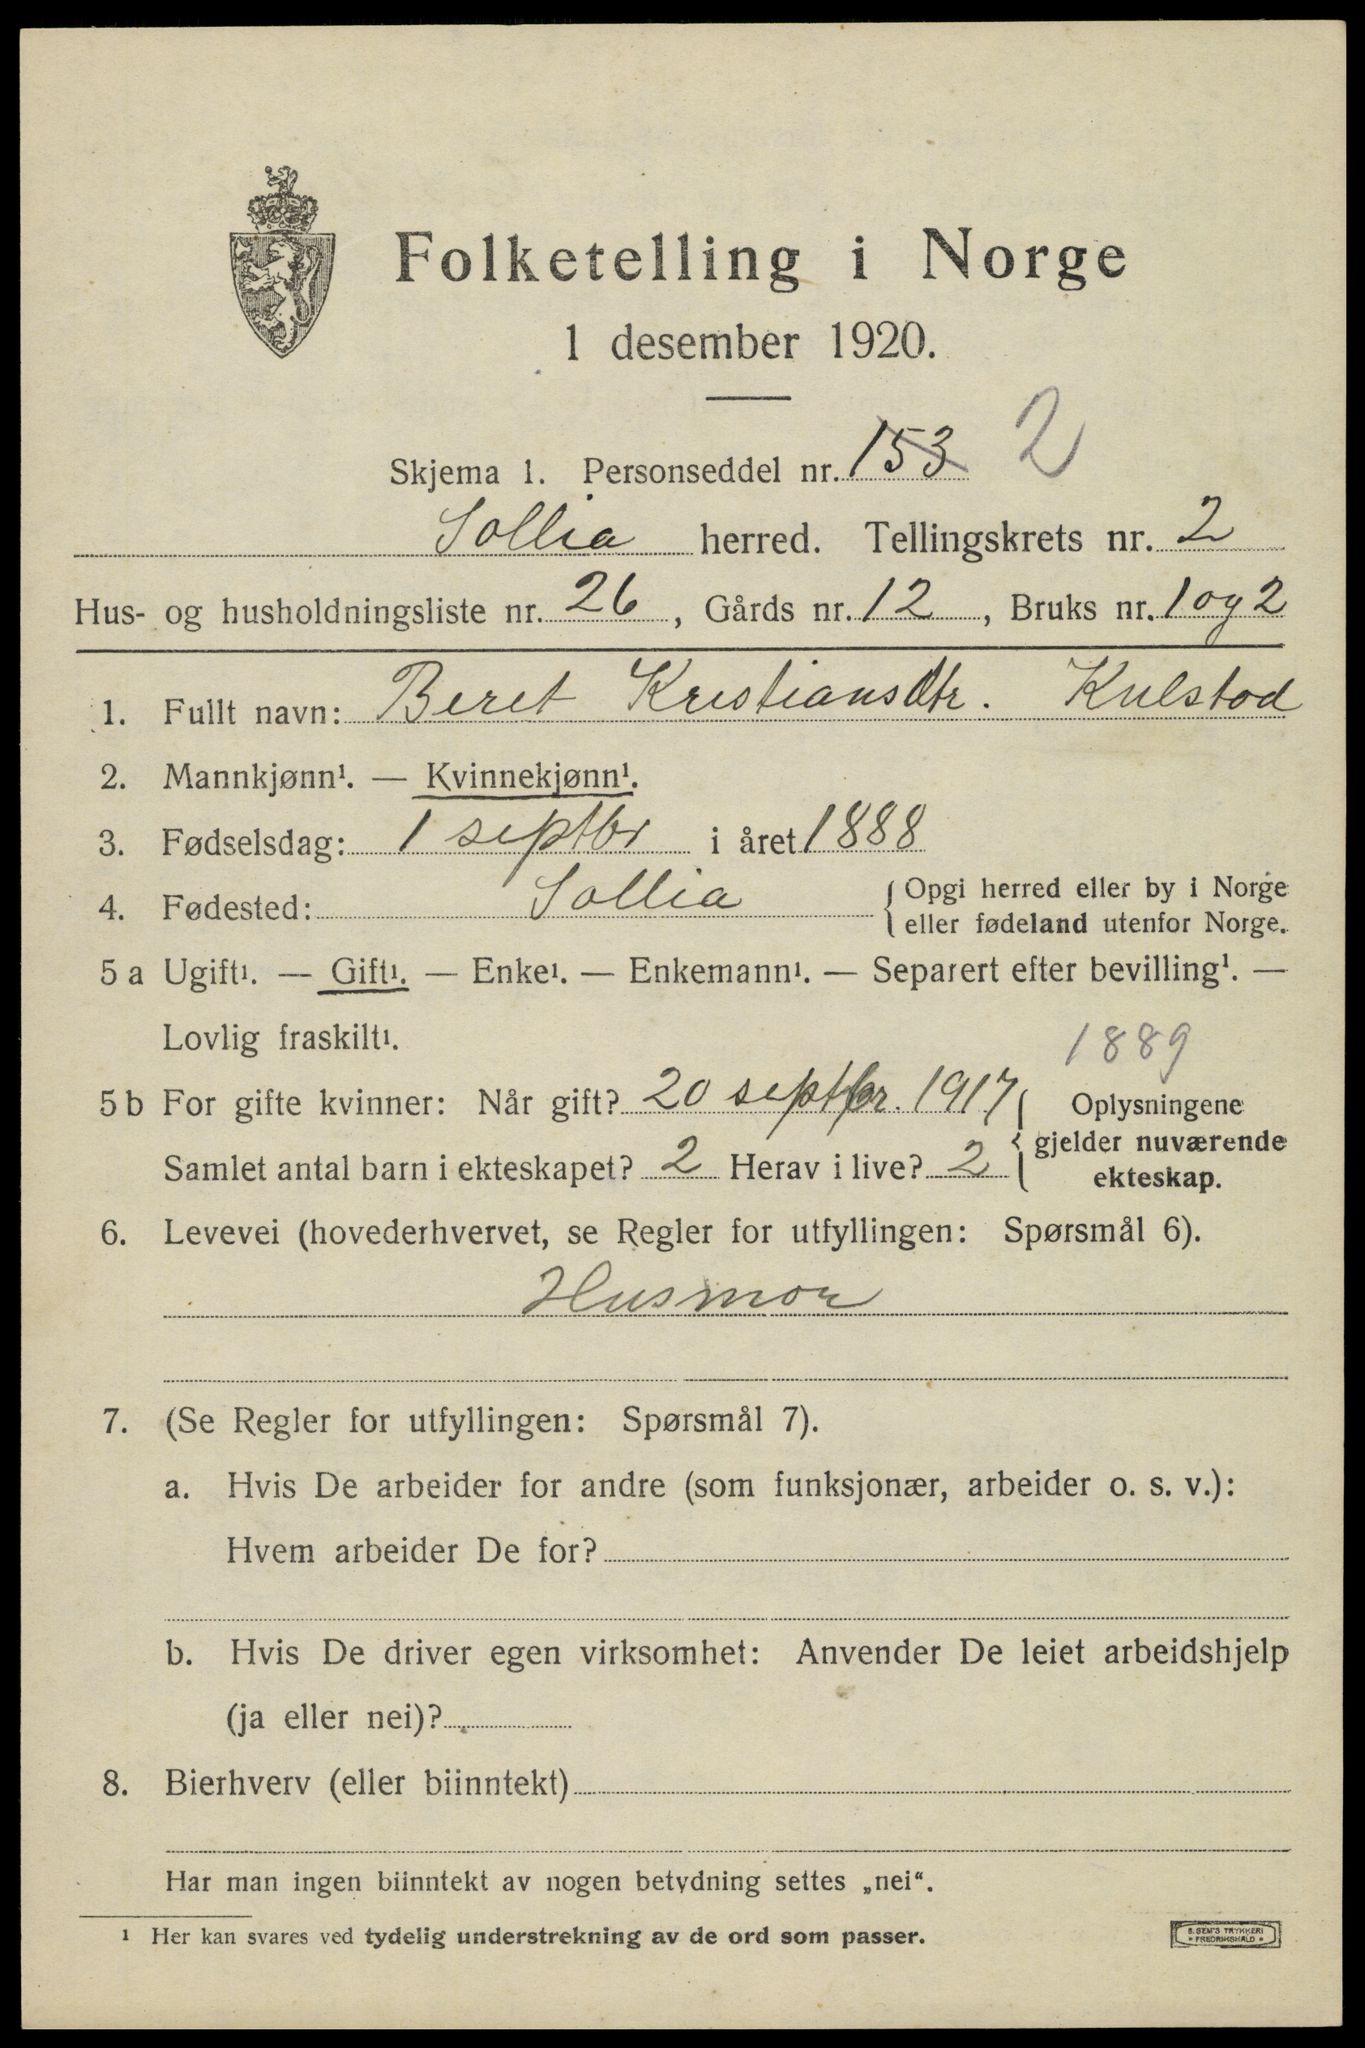 Folketelling i Norge
1 desember 1920.
Skjema 1. Personseddel nr. 153 2
Sollia herred. Tellingskrets nr. 2
Hus- og husholdningsliste nr. 26, Gårds nr. 12, Bruks nr. 1 og 2
1. Fullt navn: Beret Kristiansdtr. Kulstad
2. Mannkjønn¹. — Kvinnekjønn¹.
3. Fødselsdag: 1 septbr i året 1888
4. Fødested: Sollia { Opgi herred eller by i Norge
eller fødeland utenfor Norge.
5 a Ugift¹. — Gift¹. — Enke¹. — Enkemann¹. — Separert efter bevilling¹. —
Lovlig fraskilt¹.
1889
5 b For gifte kvinner: Når gift? 20 septbr. 1917 { Oplysningene
gjelder nuværende
Samlet antal barn i ekteskapet? 2 Herav i live? 2
ekteskap.
6. Levevei (hovederhvervet, se Regler for utfyllingen: Spørsmål 6).
Husmor
7. (Se Regler for utfyllingen: Spørsmål 7).
a. Hvis De arbeider for andre (som funksjonær, arbeider o. s. v.):
Hvem arbeider De for?
b. Hvis De driver egen virksomhet: Anvender De leiet arbeidshjelp
(ja eller nei)?
8. Bierhverv (eller biinntekt)
Har man ingen biinntekt av nogen betydning settes „nei“.
¹ Her kan svares ved tydelig understrekning av de ord som passer.
S. SEM'S TRYKKERI
* FREDRIKSHALD *